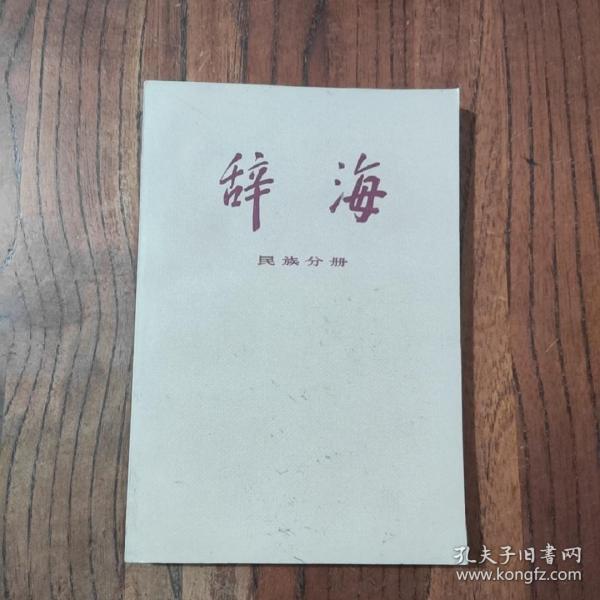 辞海
民族分册
孔夫子旧书网
www.kongfz.com